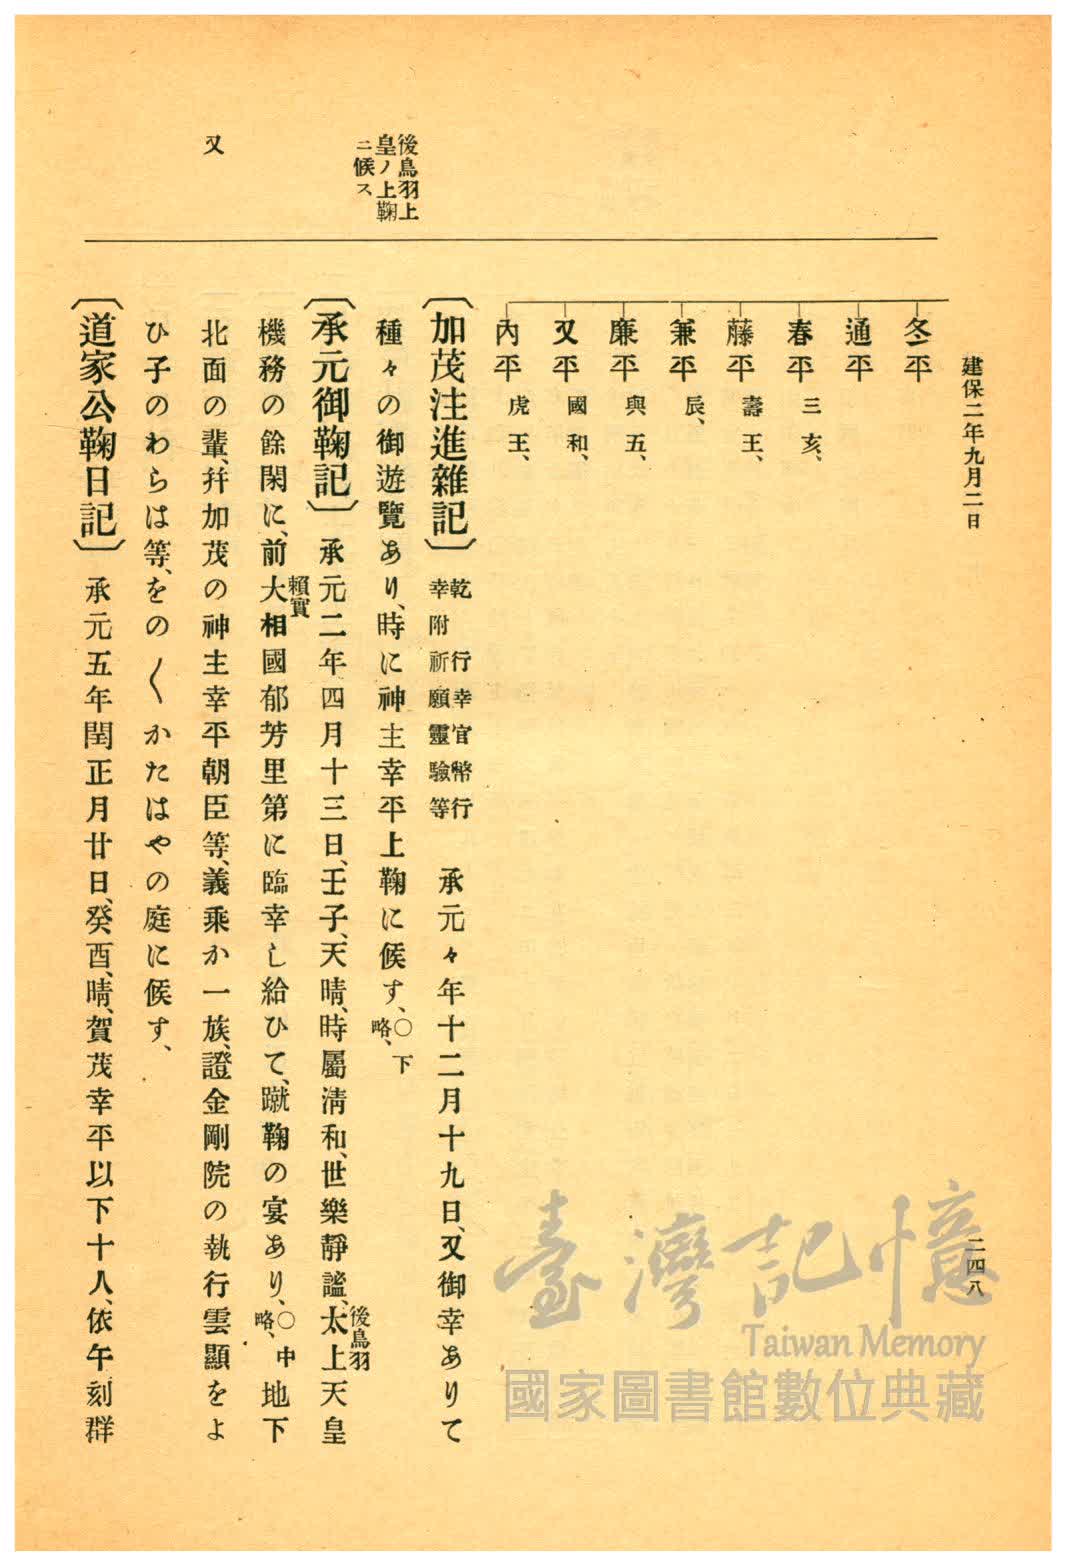 建保二年九月二日
二四八
冬平
通平
春平 三亥、
藤平 壽王、
兼平 辰、
廉平 與五、
又平 國和、
內平 虎王、
後鳥羽上
皇ノ上鞠
ニ候ス
〔加茂注進雜記〕 乾 行幸官幣行幸附祈願靈驗等 承元々年十二月十九日、又御幸ありて
種々の御遊覽あり、時に神主幸平上鞠に候す、○下略、
〔承元御鞠記〕 承元二年四月十三日、壬子、天晴、時屬淸和、世樂靜謐、太上天皇
後鳥羽
機務の餘閑に、前大相國郁芳里第に臨幸し給ひて、蹴鞠の宴あり、○中略、地下
賴實
又
北面の輩、幷加茂の神主幸平朝臣等、義乘か一族、證金剛院の執行雲顯をよ
ひ子のわらは等、をの〱かたはやの庭に候す、
〔道家公鞠日記〕 承元五年閏正月廿日、癸酉、晴、賀茂幸平以下十人、依午刻群
臺灣記憶
Taiwan Memory
國家圖書館數位典藏